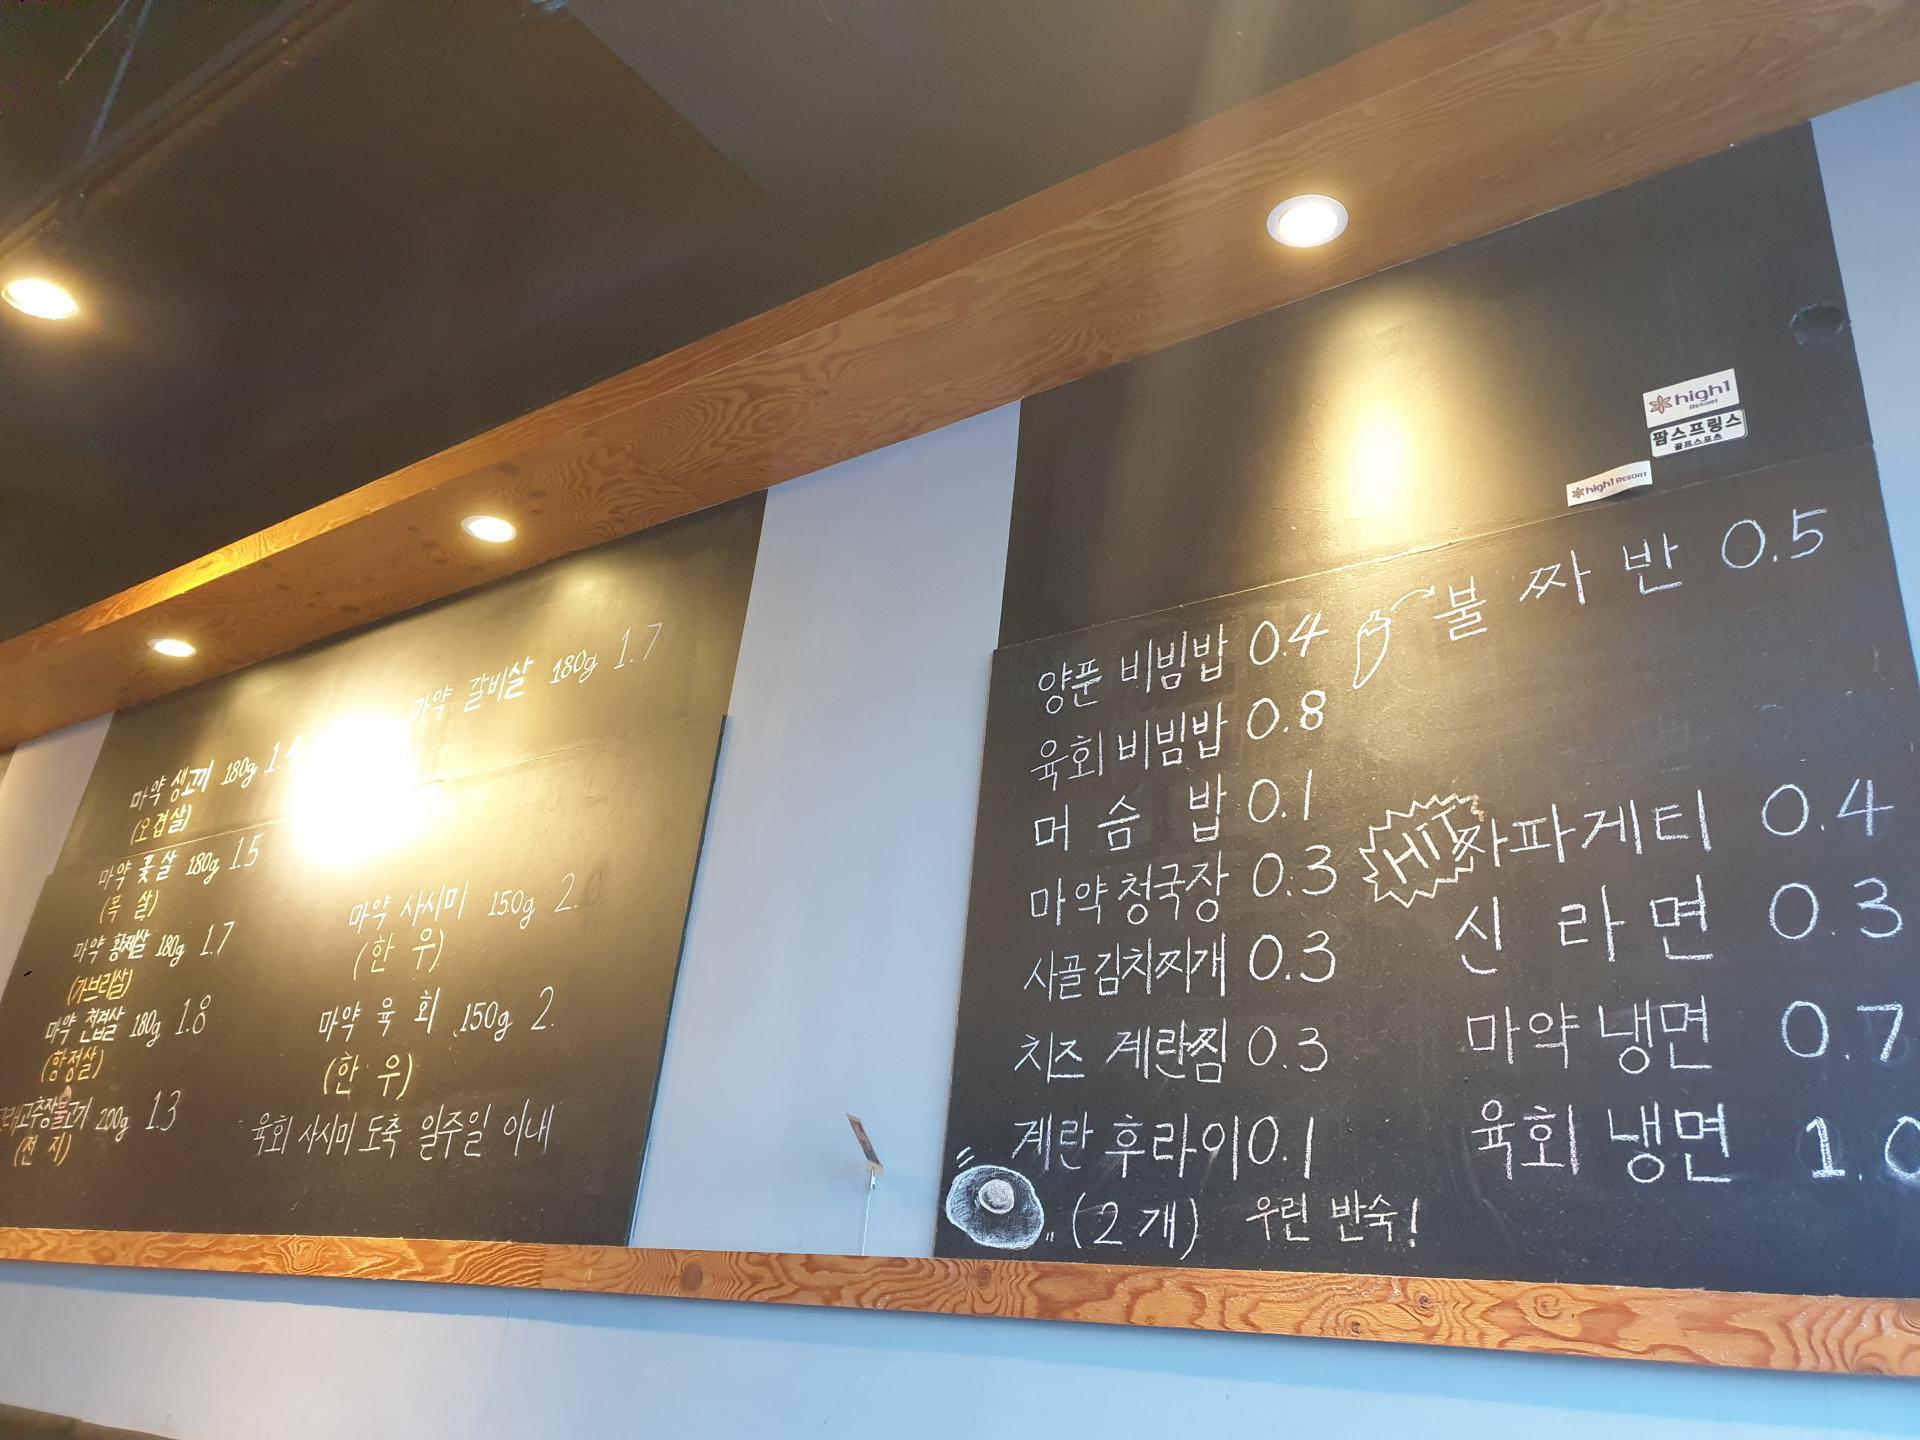 마약 갈비살 180g 1.7
마약 생고기 180g
(오겹살)
마약 꽃살 180g 1.5
(목 살)
마약 황제살 180g 1.7
(가브리살)
마약 천겹살 180g 1.8
(항정살)
고추장불고기 200g 1.3
(전 지)
마약 사시미 150g 2.
(한 우)
마약 육 회 150g 2.
(한 우)
육회 사시미 도축 일주일 이내
high1
RESORT
팜스프링스
골프스포츠
high1 RESORT
양푼 비빔밥 0.4
육회 비빔밥 0.8
머 슴 밥 0.1
마약 청국장 0.3
사골 김치찌개 0.3
치즈 계란찜 0.3
계란 후라이 0.1
(2개) 우린 반숙!
불 짜 반 0.5
HIT 짜파게티 0.4
신 라 면 0.3
마약 냉면 0.7
육회 냉면 1.0